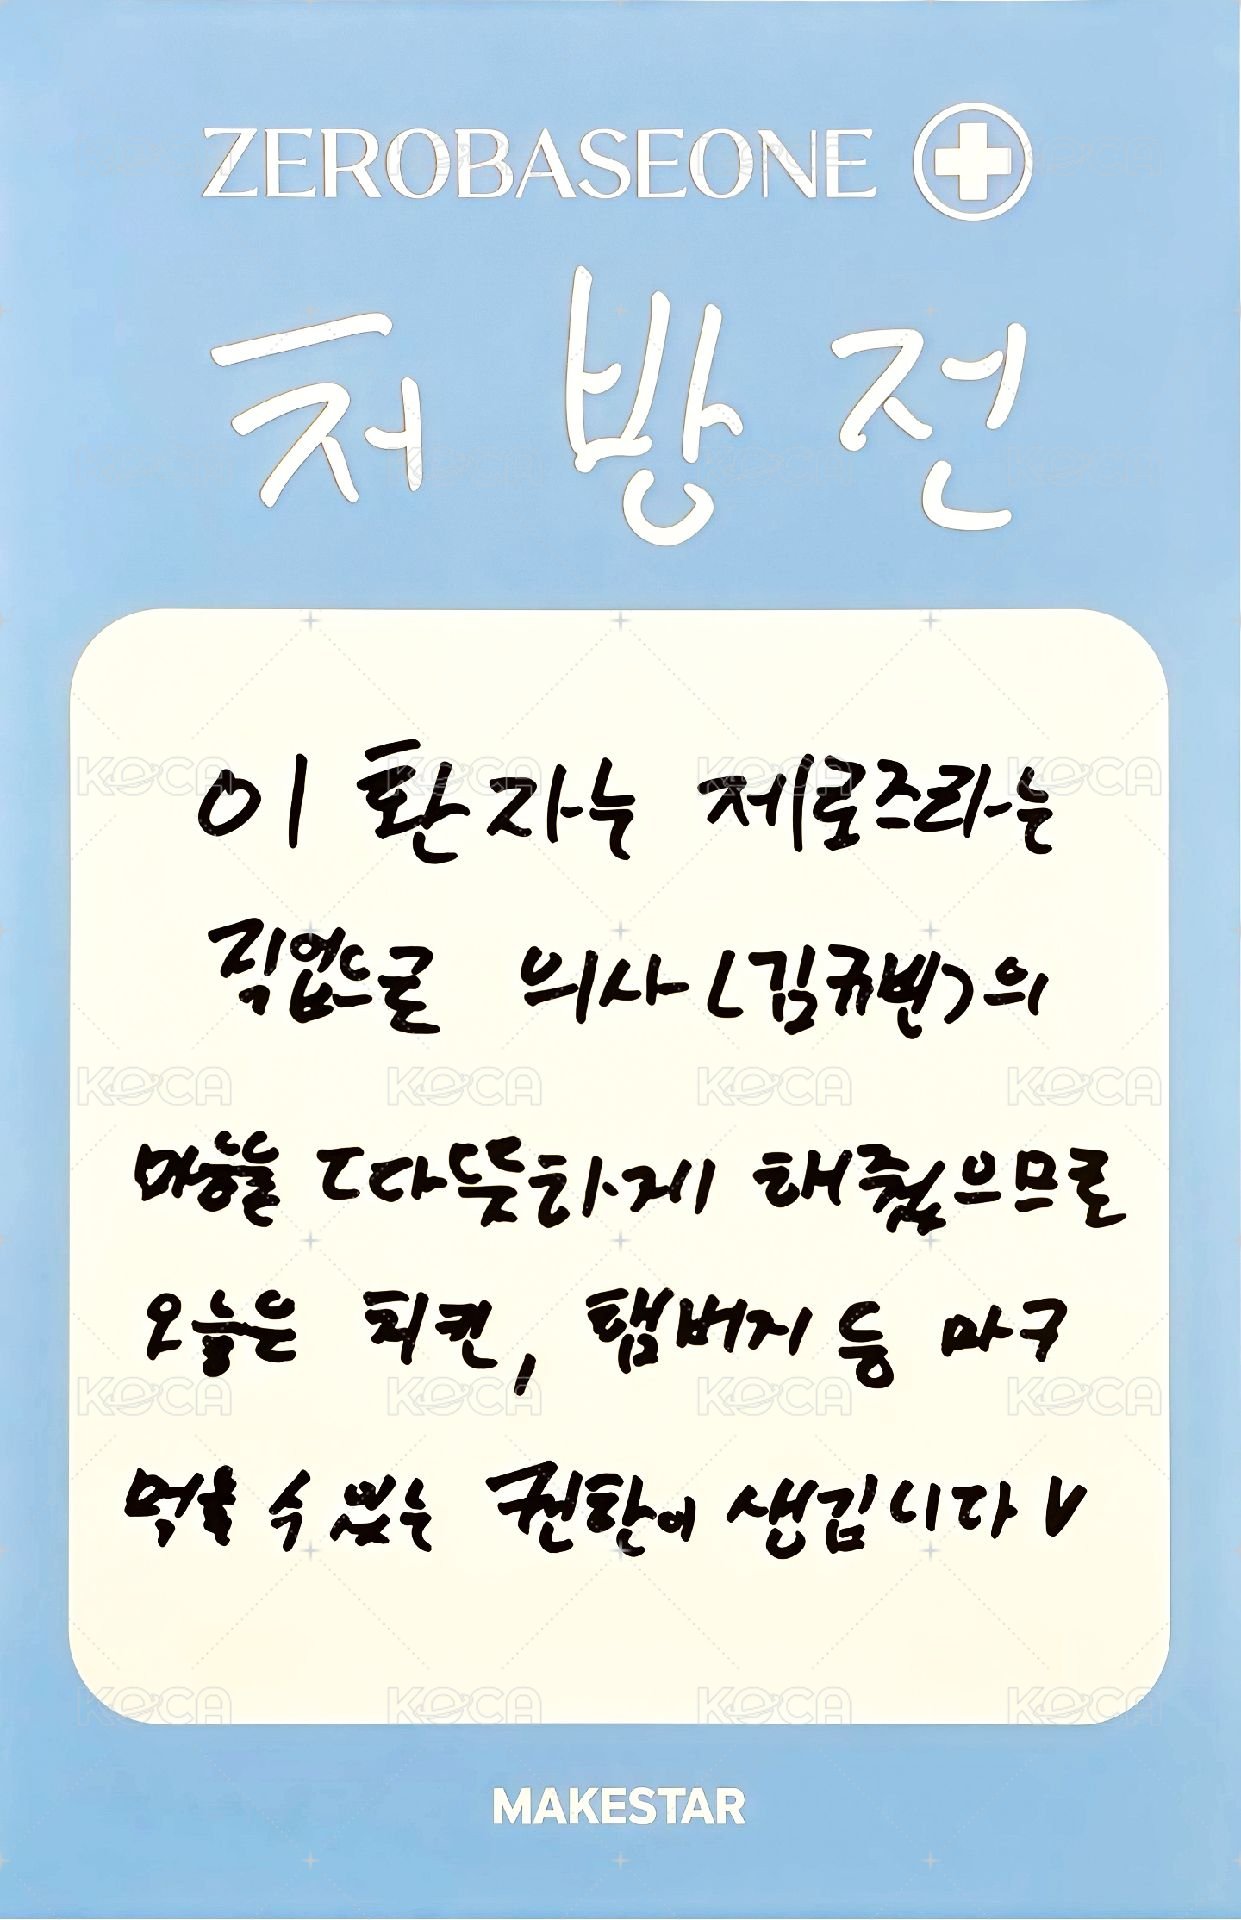 ZEROBASEONE
처방전
이 환자는 제로즈라는
직업으로 의사(김규빈)의
마음을 따뜻하게 해줬으므로
오늘은 치킨, 햄버거 등 마구
먹을 수 있는 권한이 생깁니다 V
MAKESTAR